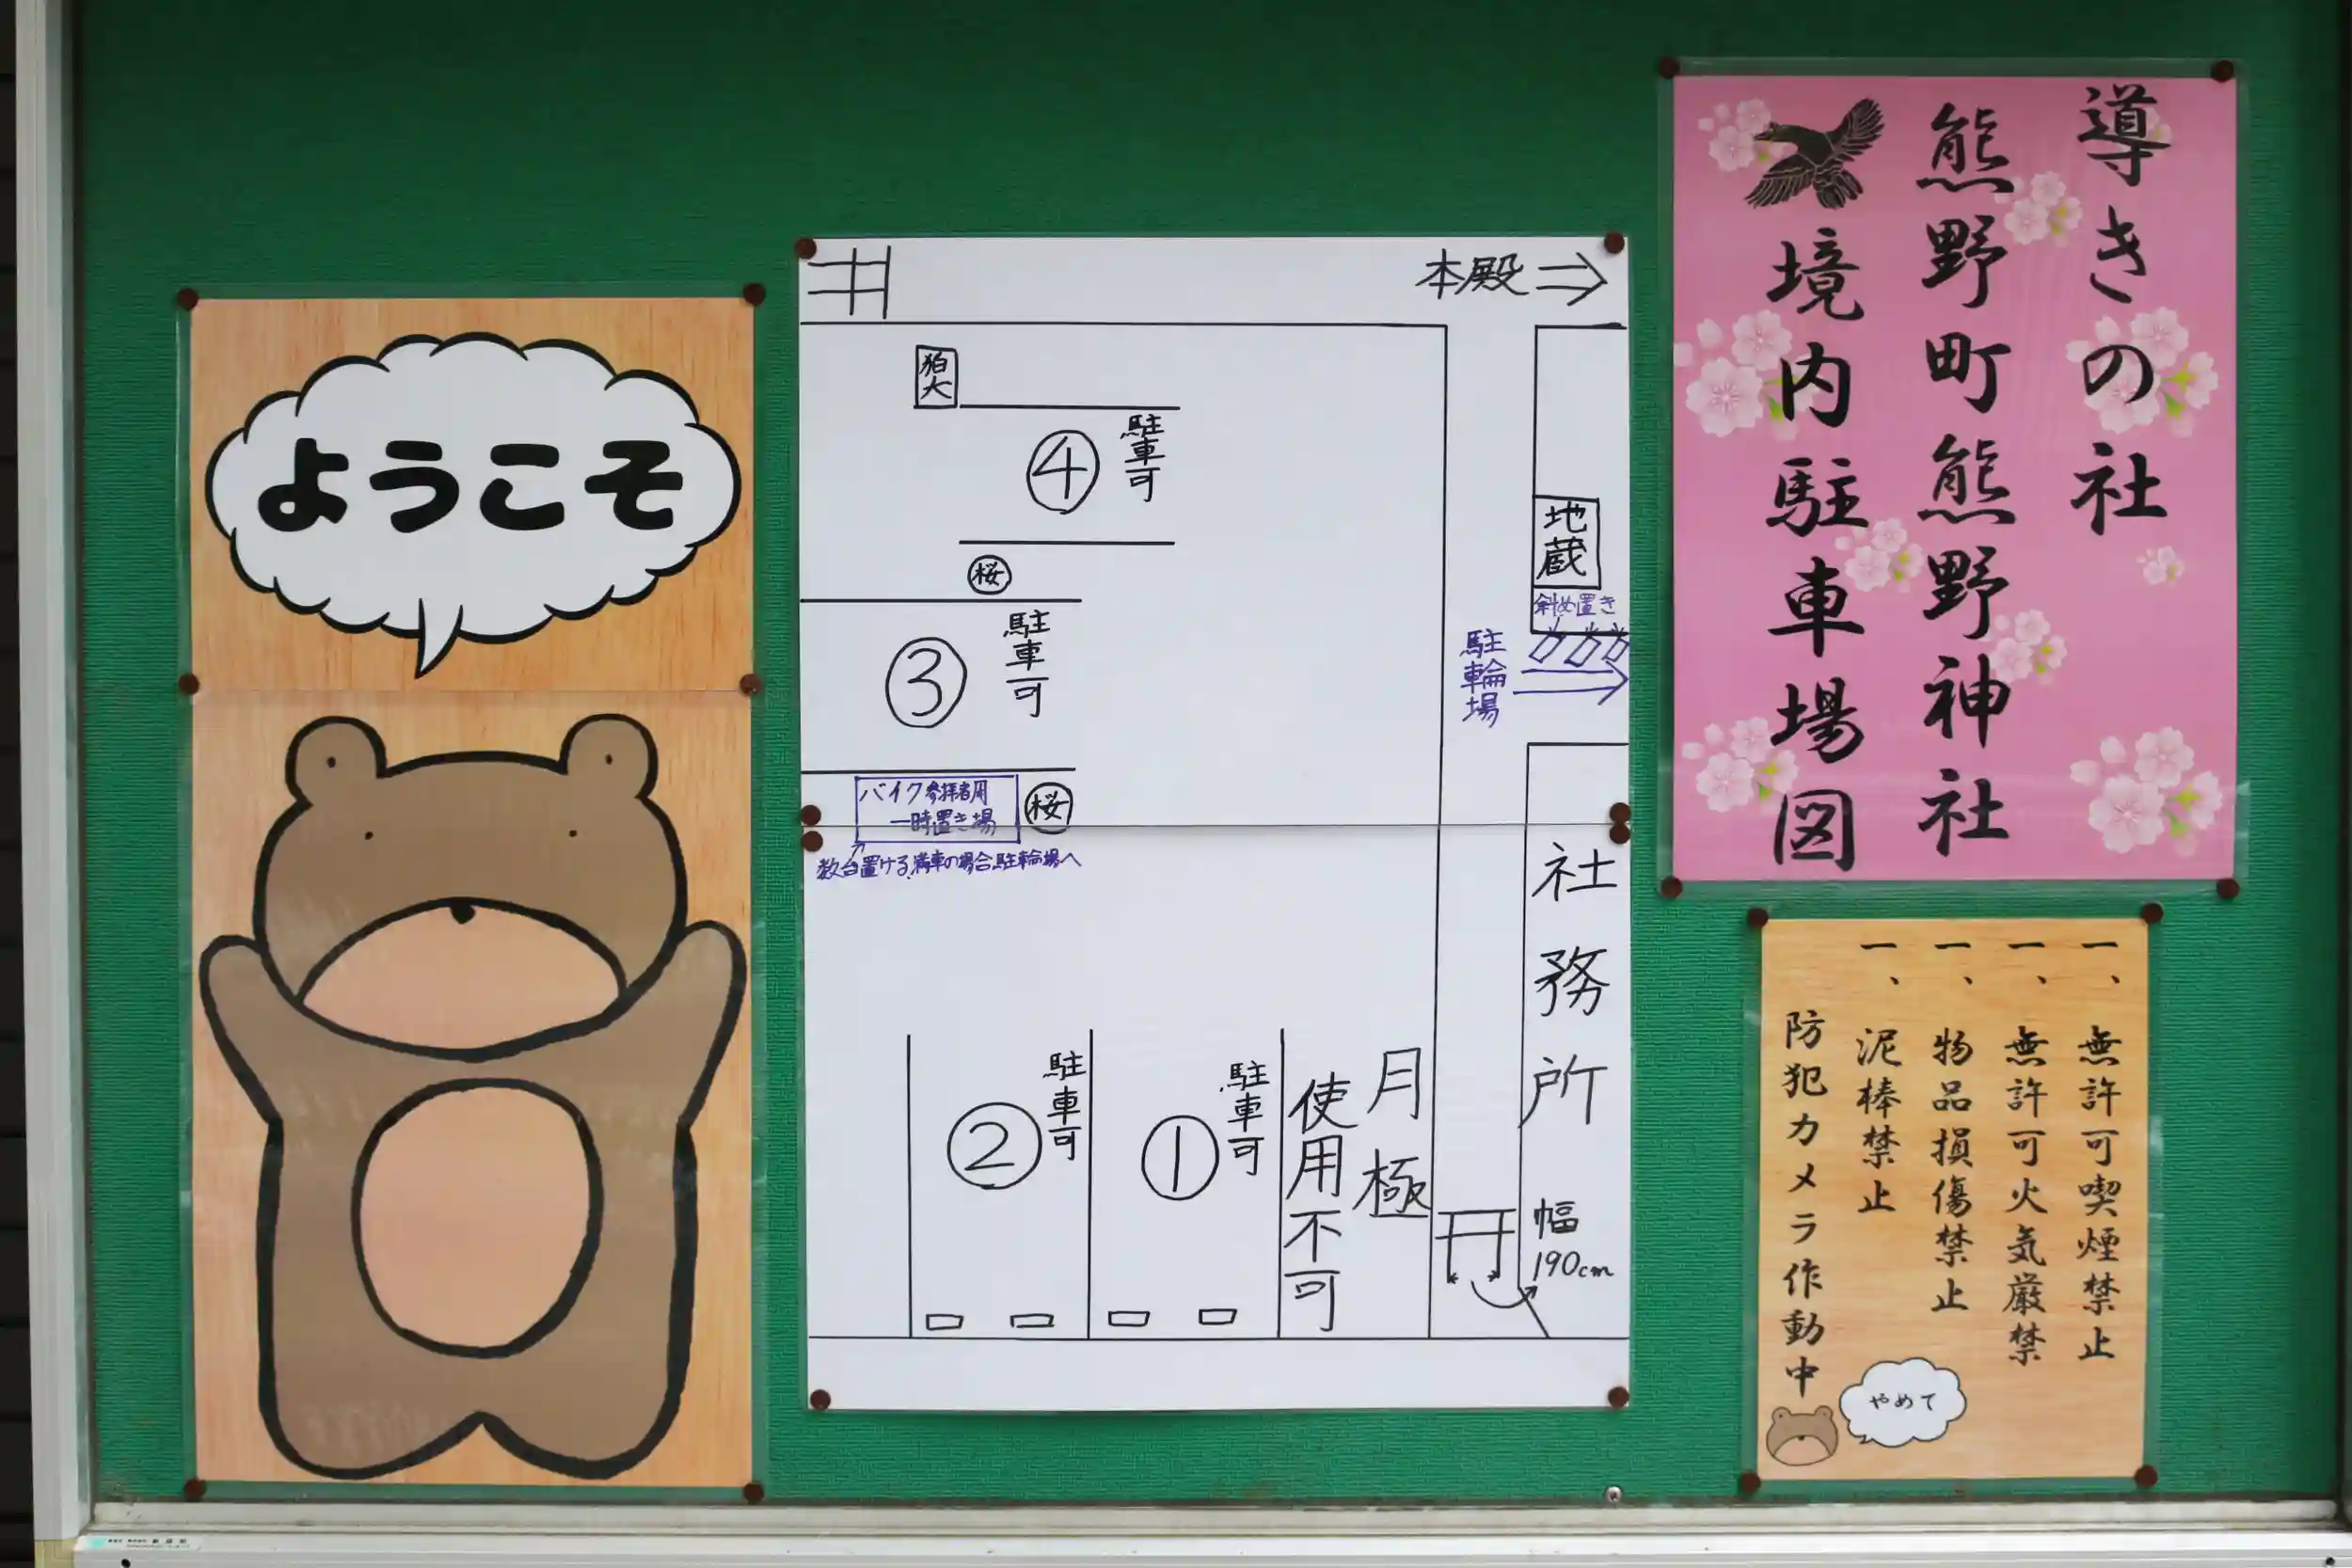 導きの社
熊野町熊野神社
境内駐車場図
ようこそ
本殿⇒
狛犬
④
駐車可
桜
地蔵
斜め置き
③
駐車可
駐輪場
バイク参拝者用
一時置き場
桜
数台置ける、満車の場合駐輪場へ
社務所
月極
使用不可
①
駐車可
②
駐車可
幅
190cm
一、無許可喫煙禁止
一、無許可火気厳禁
一、物品損傷禁止
一、泥棒禁止
防犯カメラ作動中
やめて